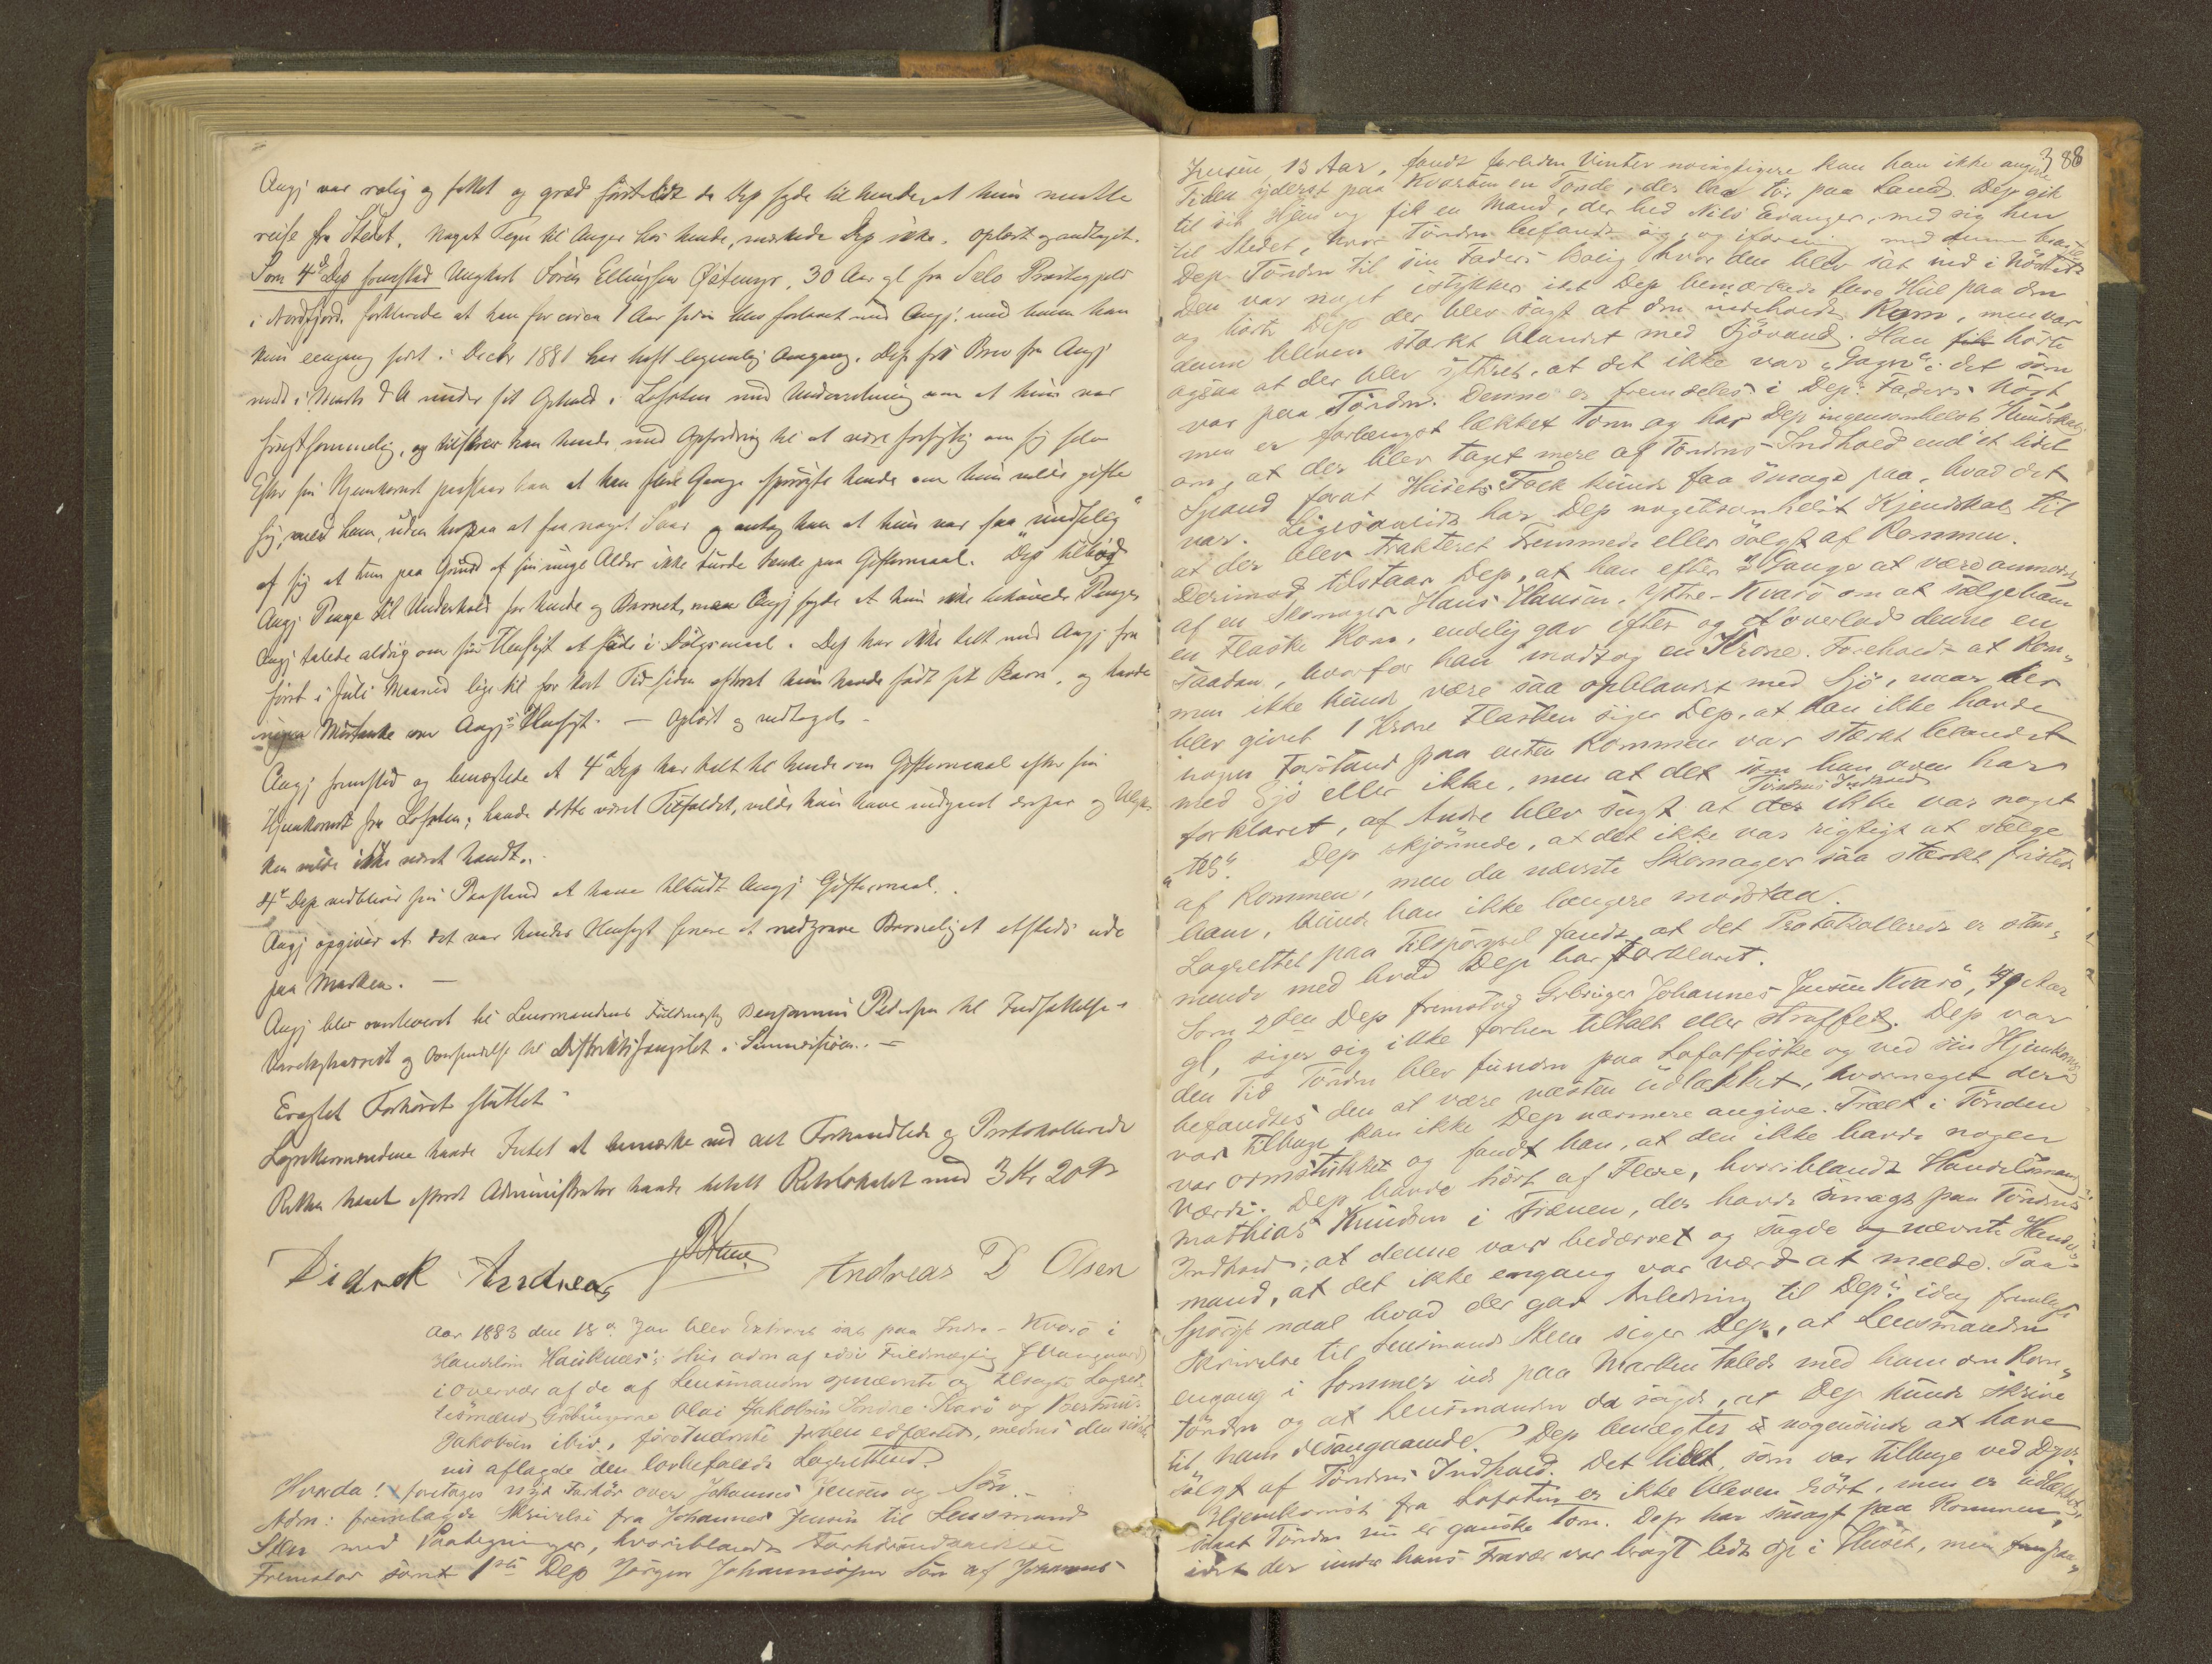 Angj var rolig og fattet og græd först lidt da Dep sagde til hende, at hun maatte
reise fra Stedet. Noget Tegn til Anger hos hende, mærkede Dep ikke. Oplæst og vedtaget.
Som 4de Dep fremstod Ungkarl Sören Ellingsen Østenyr, 30 Aar gl fra Selö Præstegjeld
i Nordfjord. forklarede at han for circa 1 Aar siden blev forlovet med Angj. med hvem han
kun eengang först i Decbr 1881 har haft legemlig Omgang. Dep fik Brev fra Angj
sendt i Marts d A under sit Ophold i Lofoten med Underretning om at hun var
frugtsommelig, og tilskrev han hende med Opfordring til at være forsigtig om sig selv
Efter sin Hjemkomst paastaar han at han flere Gange spurgte hende om hun vilde gifte
sig med ham, uden derpaa at faa noget Svar og antog han at hun var saa "undselig"
af sig at hun paa Grund af sin unge Alder ikke turde tænke paa Giftermaal. Dep tilböd
Angj. Penge til Underhold for hende og Barnet, men Angj sagde at hun ikke behövede Penge
Angj talede aldrig om sin Hensigt at föde i Dölgsmaal. Dep har ikke talt med Angj fra
först i Juli Maaned lige til for kort Tid siden efterat hun havde födt sit Barn, og havde
ingen Mistanke om Angjs Hensigt. — Oplæst og vedtaget. —
Angj fremstod og benægtede at 4de Dep har talt til hende om Giftermaal efter sin
Hjemkomst fra Lofoten; havde dette været Tilfældet, vilde hun have indgaaet derpaa og Ulykken
kan vilde ikke været hændt..
4de Dep vedbliver sin Paastand at have tilbudt Angj Giftermaal..
Angj opgiver at det var hendes Hensigt senere at nedgrave Barneliget etsteds ude
paa Marken. —
Angj blev overleveret til Lensmandens Fuldmægtig Benjamin Pedersen til Indsættelse i
Varetægtsarrest og Oversendelse til Distriktsfængslet i Sannesjöen. —
Eragtet Forhöret sluttet
Lagrettemændene havde Intet at bemærke ved det Forhandlede og Protokollerede
Retten hævet efterat Administrator havde betalt Retslokalet med 3 Kr 20 Ö
Didrek Andreas Andreas D Olsen
Aar 1883 den 18de Jan blev Extraret sat paa Indre-Kvarö i
Handelsm Hauknes's Hus adm af edsv Fuldmægtig
i Overvær af de af Lensmanden opnævnte og tilsagte Lagret-
tesmænd Gbrugerne Olai Jakobsen Indre Kvarö og
Jakobsen ibid., förstnævnte forhen edfæstet, medens den sidste
nu aflagde den lovbefalede Lagretteed.
Hvorda! foretages nyt Forhör over Johannes Jensen og Sön.
Adm: fremlagde Skrivelse fra Johannes Jensen til Lensmand
Steen med Paategninger, hvoriblandt
Fremstod som 1ste Dep Jörgen Johannesen Sön af Johannes
388
Jensen, 13 Aar, fandt forleden Vinter nöiagtigere kan han ikke angive
Tiden yderst paa Kvaröen en Tönde, der laa tör paa Land. Dep gik
til sit Hjem og fik en Mand, der hed Nils Evanger, med sig hen
til Stedet, hvor Tönden befandt sig, og iforening med denne bragte
Dep Tönden til sin Faders Bolig hvor den blev sat ned i Nöstet
Den var noget istykker idet Dep bemærkede flere Hul paa den
og hörte Dep der blev sagt at den indeholdt Rom, men var
denne bleven stærkt blandet med Sjövand. Han fik hörte
ogsaa at der blev yttret, at det ikke var "Gagn" i det som
var paa Tönden. Denne er fremdeles i Dep's Faders Nöst,
men er forlængst lækket tom og har Dep ingensomhelst Kundskab
om, at der blev taget mere af Töndens Indhold end et lidet
Spand forat Husets Folk kunde faa smage paa, hvad det
var. Ligesaalidt har Dep nogetsomhelst Kjendskab til
at der blev trakteret Fremmede eller solgt af Rommen.
Derimod tilstaar Dep, at han efter 3 Gange at være anmodet
af en Skomager Hans Hansen, Yttre-Kvarö om at sælge ham
en Flaske Rom, endelig gav efter og overlod denne en
saadan, hvorfor han modtog en Krone. Foreholdt at Rom-
men ikke kunde være saa opblandet med Sjö, naar der
blev givet 1 Krone Flasken siger Dep, at han ikke havde
nogen Forstand paa enten Rommen var stærkt blandet
med Sjö eller ikke, men at det som han oven har
forklaret, af Andre blev sagt at der Töndens Indhold ikke var noget
"tes". Dep skjönnede, at det ikke var rigtigt at sælge
af Rommen, men da nævnte Skomager saa stærkt fristede
ham, kunde han ikke længere modstaa.
Lagrettet paa Tilspörgsel fandt at det Protokollerede er stem-
mende med hvad Dep har forklaret.
Som 2den Dep fremstod Gbruger Johannes Jensen Kvarö, 49 Aar
gl, siger sig ikke forhen tiltalt eller straffet. Dep var
den Tid Tönden blev funden paa Lofotfiske og ved sin Hjemkomst
befandtes den at være næsten udlækket, hvormeget der
var tilbage kan ikke Dep nærmere angive. Træet i Tönden
var ormstukket og fandt han, at den ikke havde nogen
Værdi. Dep havde hört af Flere, hvoriblandt Handelsmand
Mathias Knudsen i Trænen, der havde smagt paa Töndens
Indhold, at denne var bedærvet og sagde og nævnte Handels-
mand, at det ikke engang var værd at melde. Paa
Spörgsmaal hvad der gav Anledning til Dep's idag fremlagte
Skrivelse til Lensmand Steen siger Dep, at Lensmanden
engang i Sommer ude paa Marken talede med ham om Rom-
tönden og at Lensmanden da sagde, at Dep kunde skrive
til ham desangaaende. Dep benægter nogensinde at have
solgt af Töndens Indhold. Det lidet, som var tilbage ved Dep's
Hjemkomst fra Lofoten er ikke bleven rört, men er udlækket
idet Tönden nu er ganske tom. Dep har smagt paa Rommen,
idet der under hans Fravær var bragt lidt op i Huset, men